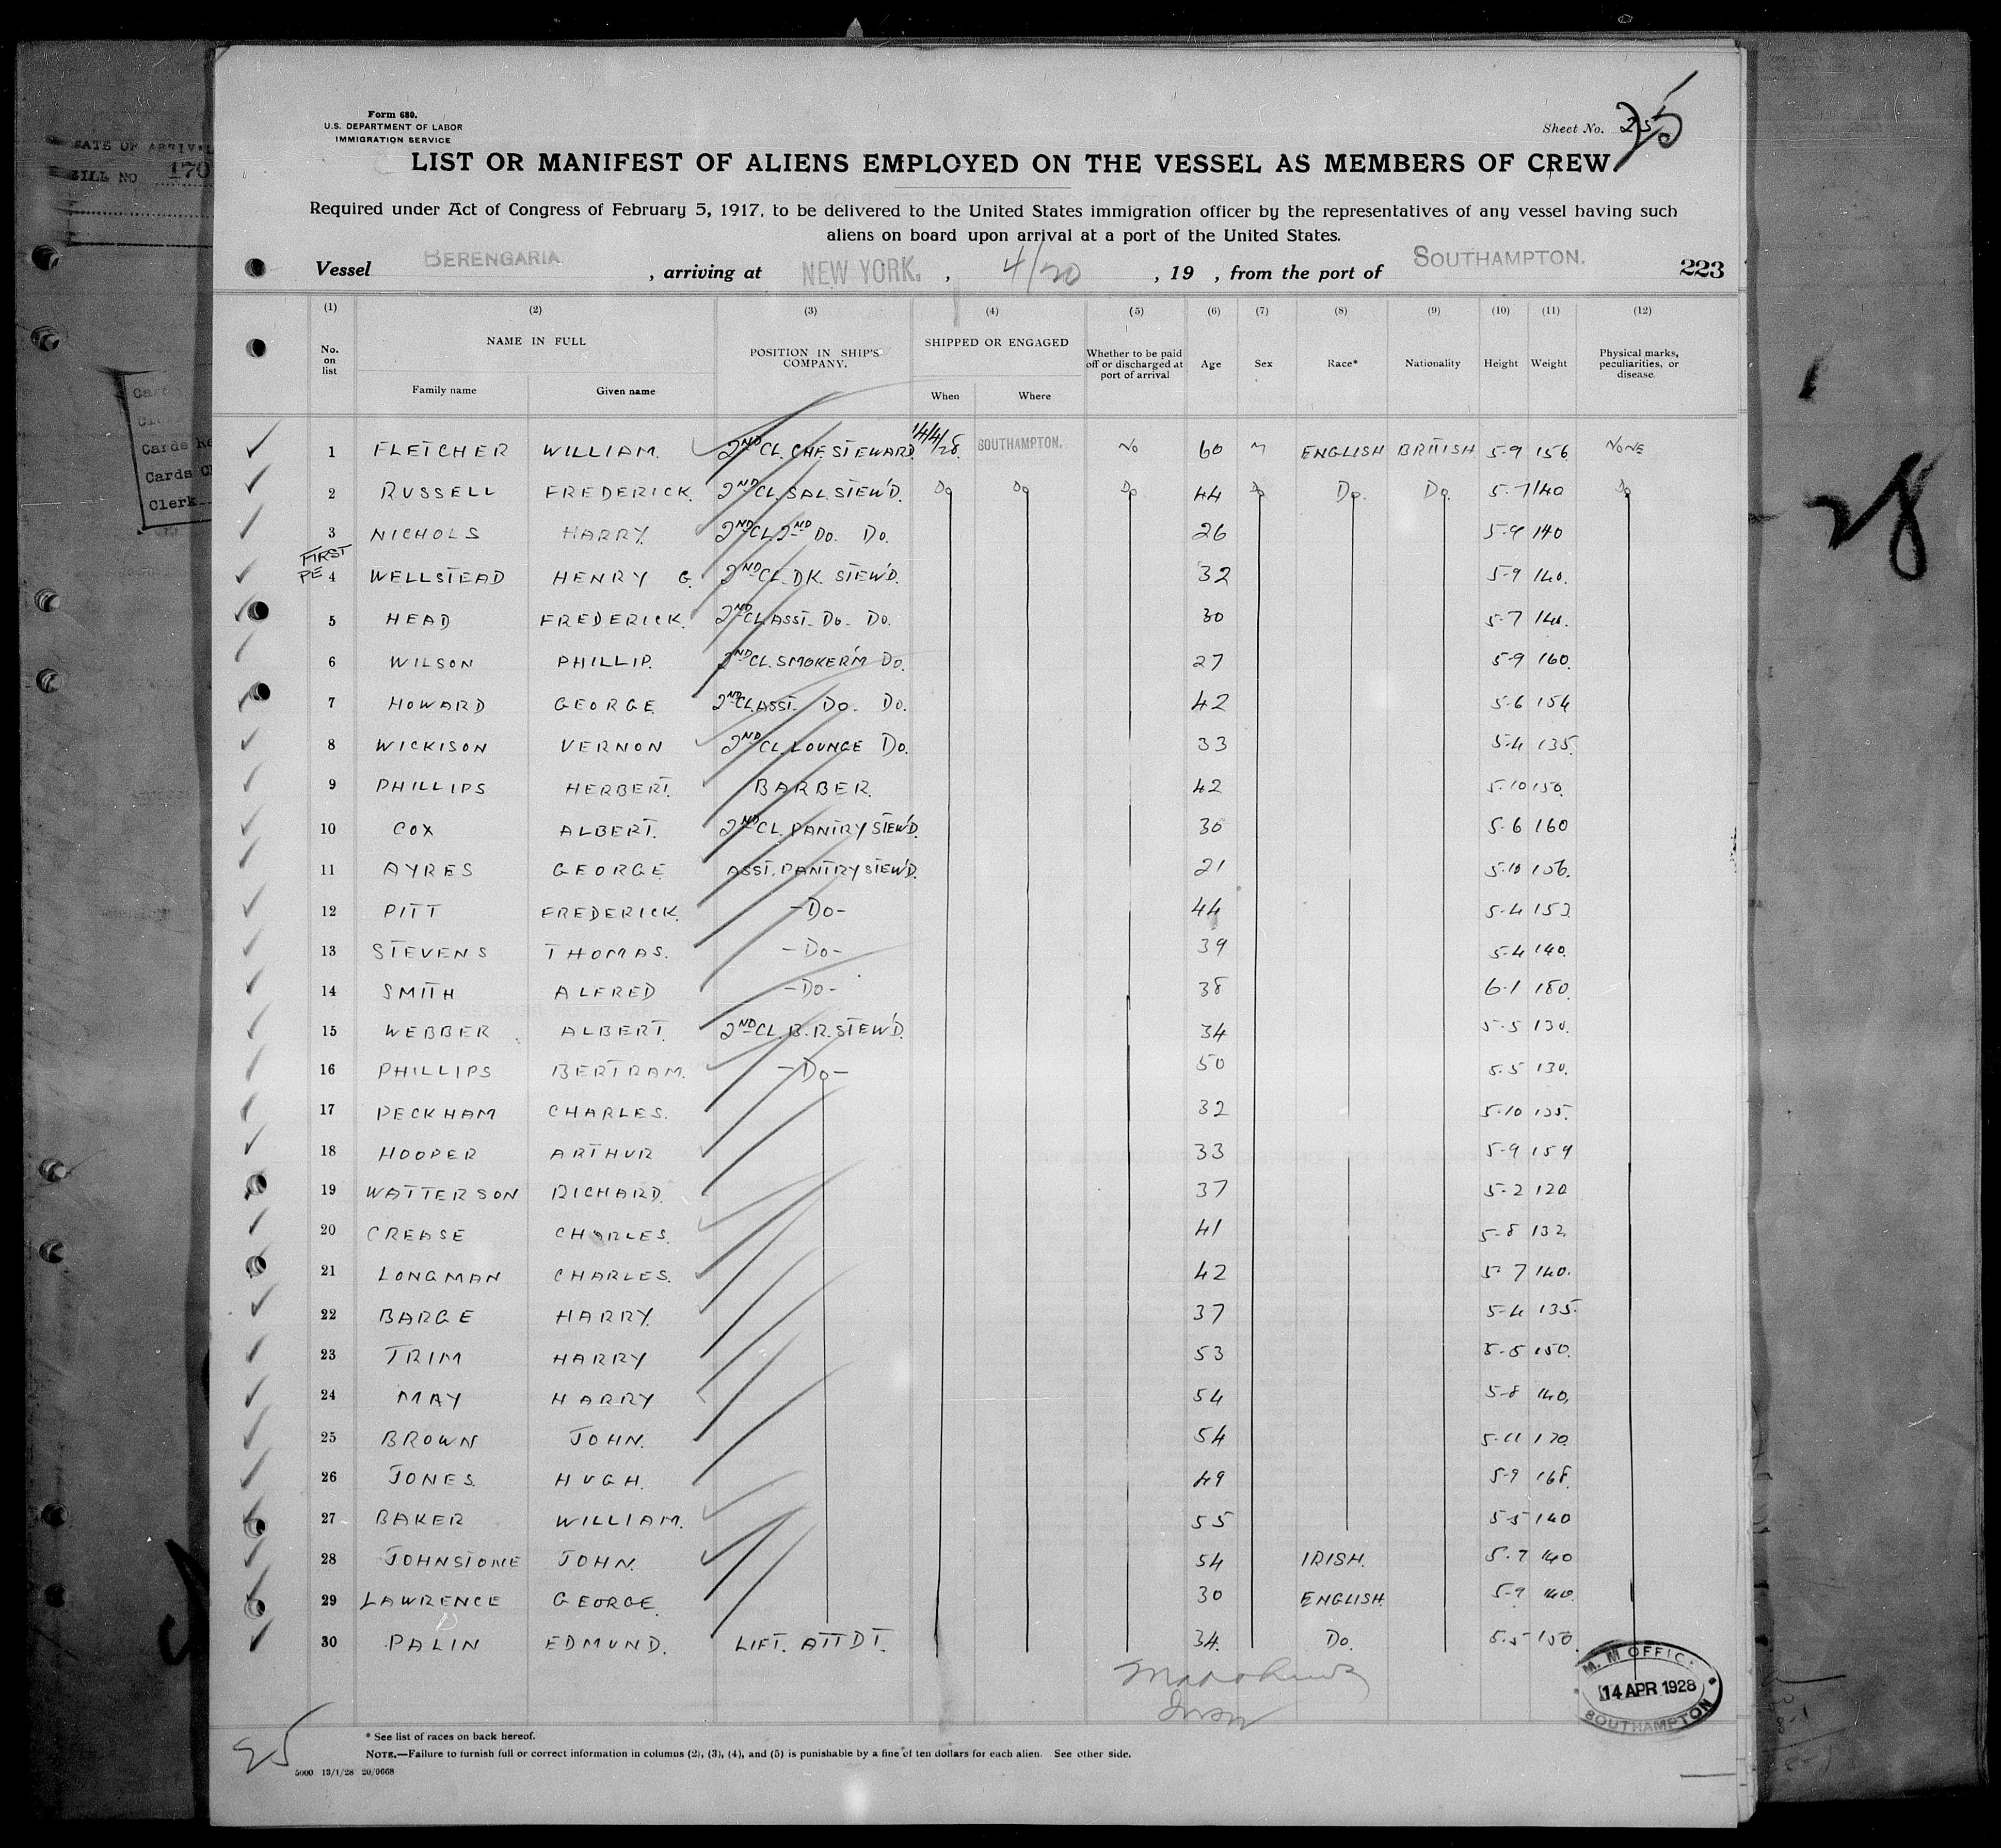 DATE OF ARRIVAL
BILL NO 170
Cards
Cards Re
Cards C
Clerk
Form 680.
U.S. DEPARTMENT OF LABOR
IMMIGRATION SERVICE
Sheet No. 25
LIST OR MANIFEST OF ALIENS EMPLOYED ON THE VESSEL AS MEMBERS OF CREW
Required under Act of Congress of February 5, 1917, to be delivered to the United States immigration officer by the representatives of any vessel having such
aliens on board upon arrival at a port of the United States.
Vessel BERENGARIA, arriving at NEW YORK., 4/20, 19 , from the port of SOUTHAMPTON. 223
(1) (2) (3) (4) (5) (6) (7) (8) (9) (10) (11) (12)
No. on list NAME IN FULL Family name Given name POSITION IN SHIP'S COMPANY. SHIPPED OR ENGAGED When Where Whether to be paid off or discharged at port of arrival Age Sex Race* Nationality Height Weight Physical marks, peculiarities, or disease.
1 FLETCHER WILLIAM. 2ND CL. CHF. STEWARD. 14/4/28. SOUTHAMPTON. NO 60 M ENGLISH BRITISH 5-9 156 NONE
2 RUSSELL FREDERICK. 2ND CL. SAL. STEW'D. Do Do Do 44 Do Do. Do. 5-7 140 Do
3 NICHOLS HARRY. 2ND CL. 2ND Do. Do. 26 5-9 140
FIRST
PE 4 WELLSTEAD HENRY G. 2ND CL. DK. STEW'D. 32 5-9 140.
5 HEAD FREDERICK. 2ND CL. ASST. Do. Do. 30 5-7 140.
6 WILSON PHILLIP. 2ND CL. SMOKER'M Do. 27 5-9 160.
7 HOWARD GEORGE 2ND CL. ASST. Do. Do. 42 5-6 154
8 WICKISON VERNON 2ND CL. LOUNGE Do. 33 5-4 135.
9 PHILLIPS HERBERT. BARBER. 42 5-10 150.
10 COX ALBERT. 2ND CL. PANTRY STEW'D. 30 5-6 160
11 AYRES GEORGE ASST. PANTRY STEW'D. 21 5-10 156.
12 PITT FREDERICK. -Do- 44 5-4 153
13 STEVENS THOMAS. -Do- 39 5-4 140.
14 SMITH ALFRED -Do- 38 6-1 180.
15 WEBBER ALBERT. 2ND CL. B.R. STEW'D. 34 5-5 130.
16 PHILLIPS BERTRAM. -Do- 50 5-5 130.
17 PECKHAM CHARLES. 32 5-10 135.
18 HOOPER ARTHUR 33 5-9 154
19 WATTERSON RICHARD. 37 5-2 120
20 CREASE CHARLES. 41 5-8 132
21 LONGMAN CHARLES. 42 5-7 140.
22 BARGE HARRY. 37 5-4 135.
23 TRIM HARRY 53 5-5 150.
24 MAY HARRY 54 5-8 140.
25 BROWN JOHN. 54 5-11 170.
26 JONES. HUGH. 49 5-9 168.
27 BAKER WILLIAM. 55 5-5 140
28 JOHNSTONE JOHN. 54 IRISH. 5-7 140
29 LAWRENCE GEORGE. 30 ENGLISH. 5-9 140.
30 PALIN EDMUND. LIFT. ATTDT. 34. Do. 5-5 150.
M. M OFFICE
14 APR 1928
SOUTHAMPTON
25
* See list of races on back hereof.
NOTE.—Failure to furnish full or correct information in columns (2), (3), (4), and (5) is punishable by a fine of ten dollars for each alien. See other side.
5000 13/1/28 20/9668
28